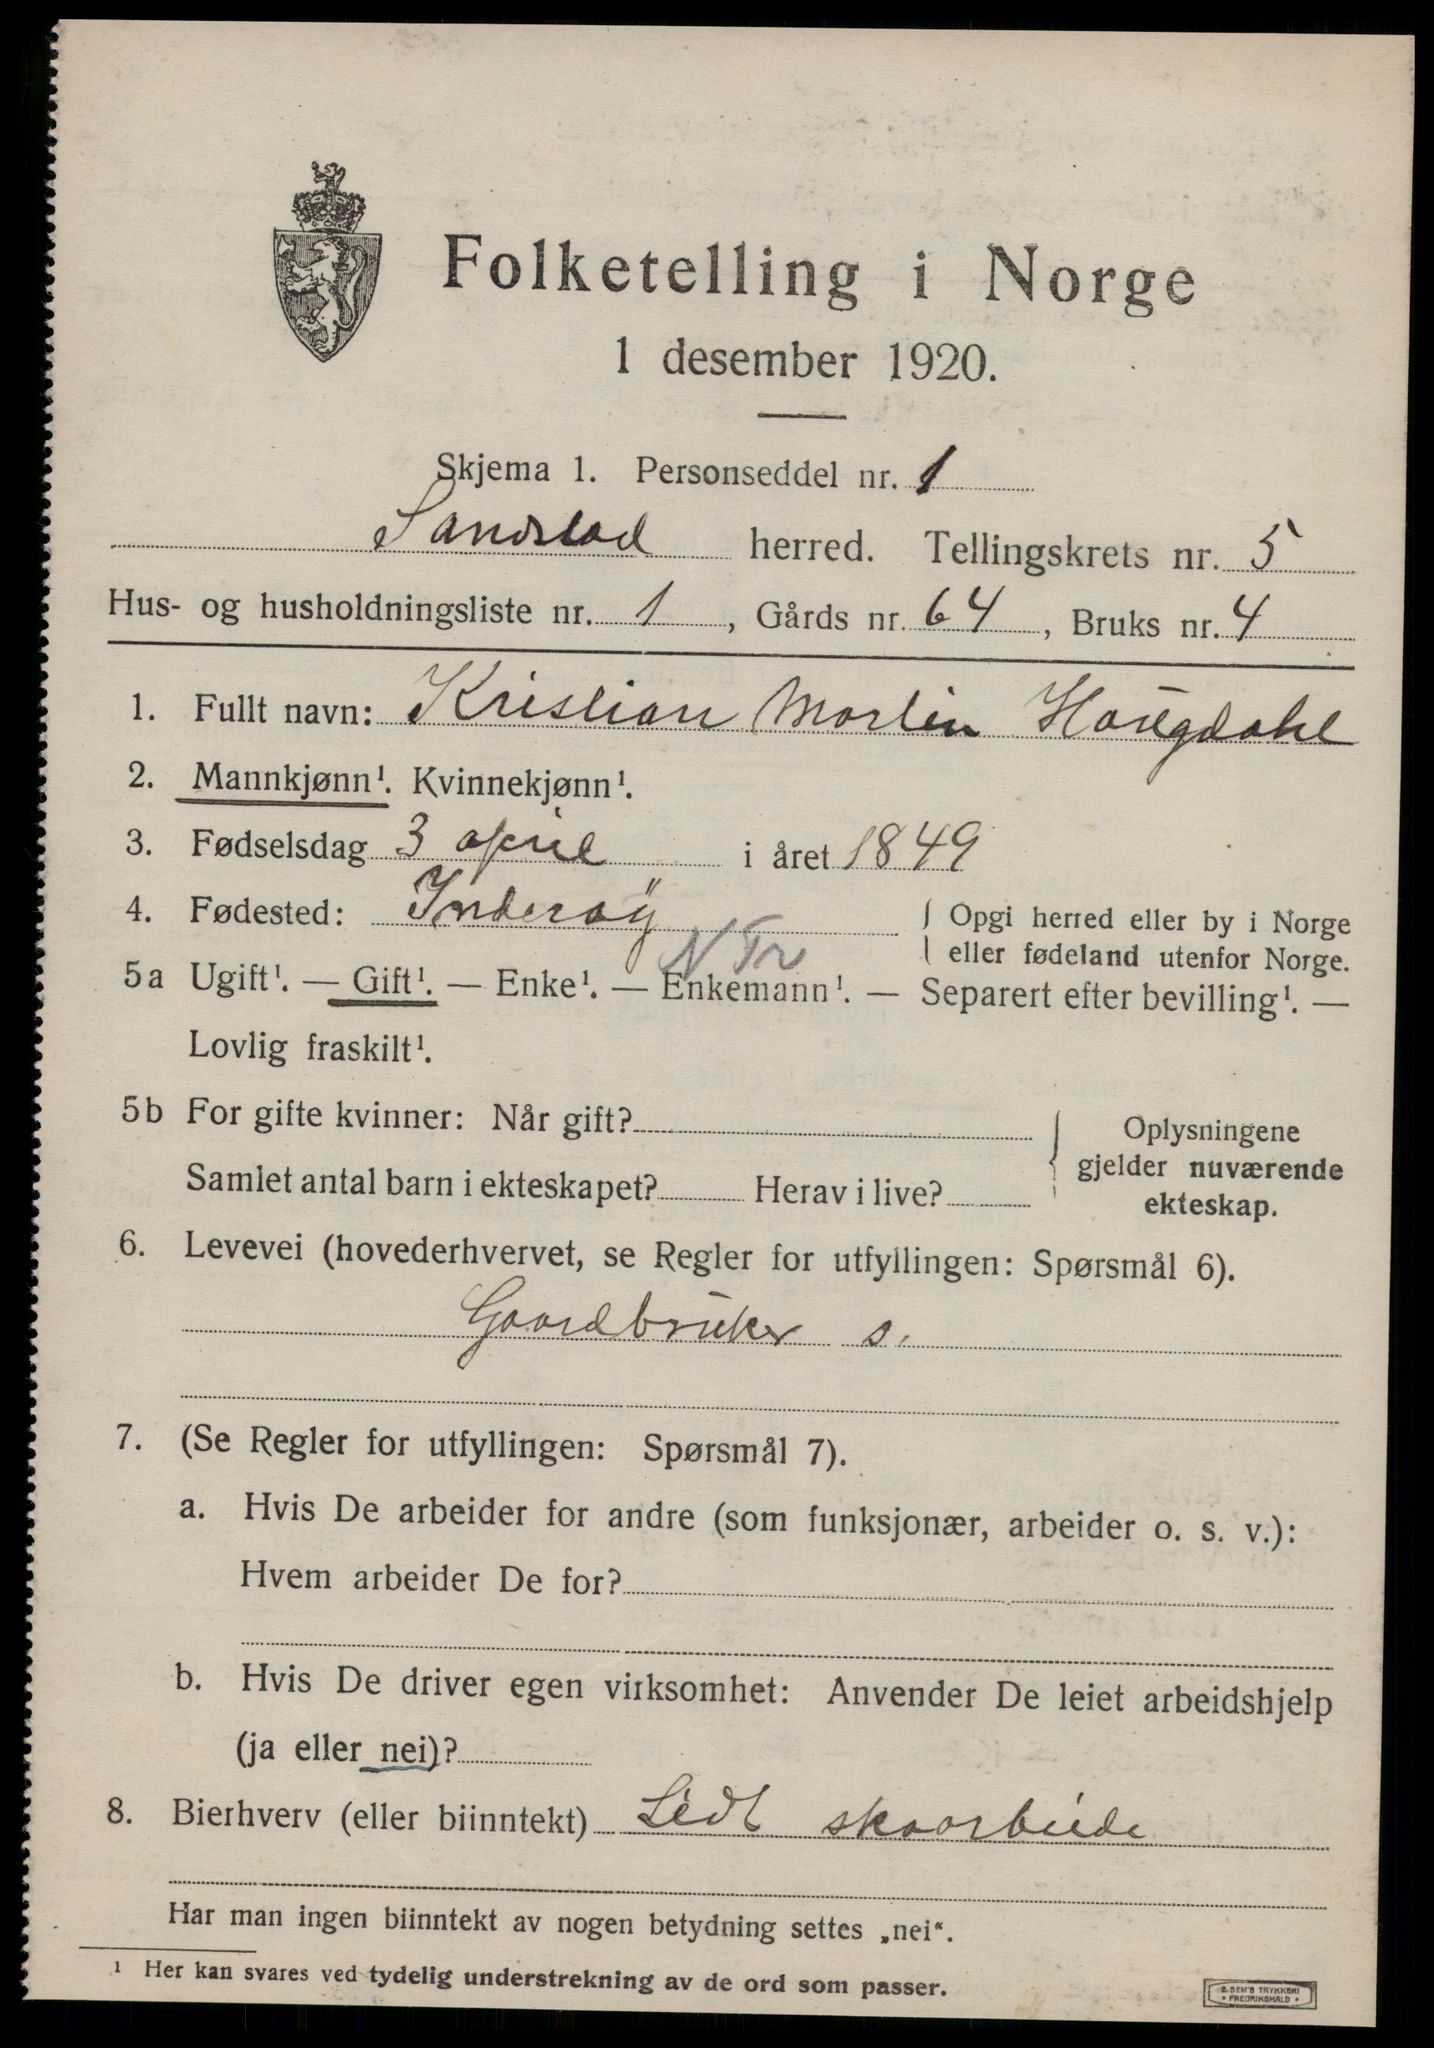 Folketelling i Norge
1 desember 1920.
Skjema 1. Personseddel nr. 1
Sandstad herred. Tellingskrets nr. 5
Hus- og husholdningsliste nr. 1, Gårds nr. 64, Bruks nr. 4
1. Fullt navn: Kristian Martin Haugdahl
2. Mannkjønn¹. Kvinnekjønn¹.
3. Fødselsdag 3 april i året 1849
4. Fødested: Inderøy { Opgi herred eller by i Norge
N Tr
eller fødeland utenfor Norge.
5a Ugift¹. — Gift¹. — Enke¹. — Enkemann¹. — Separert efter bevilling¹. —
Lovlig fraskilt¹.
5b For gifte kvinner: Når gift?
Samlet antal barn i ekteskapet? Herav i live?
{ Oplysningene
gjelder nuværende
ekteskap.
6. Levevei (hovederhvervet, se Regler for utfyllingen: Spørsmål 6).
Gaardbruker s.
7. (Se Regler for utfyllingen: Spørsmål 7).
a. Hvis De arbeider for andre (som funksjonær, arbeider o. s. v.):
Hvem arbeider De for?
b. Hvis De driver egen virksomhet: Anvender De leiet arbeidshjelp
(ja eller nei)?
8. Bierhverv (eller biinntekt)
Har man ingen biinntekt av nogen betydning settes „nei“.
¹ Her kan svares ved tydelig understrekning av de ord som passer.
E. SEM'S TRYKKERI
• FREDRIKSHALD •